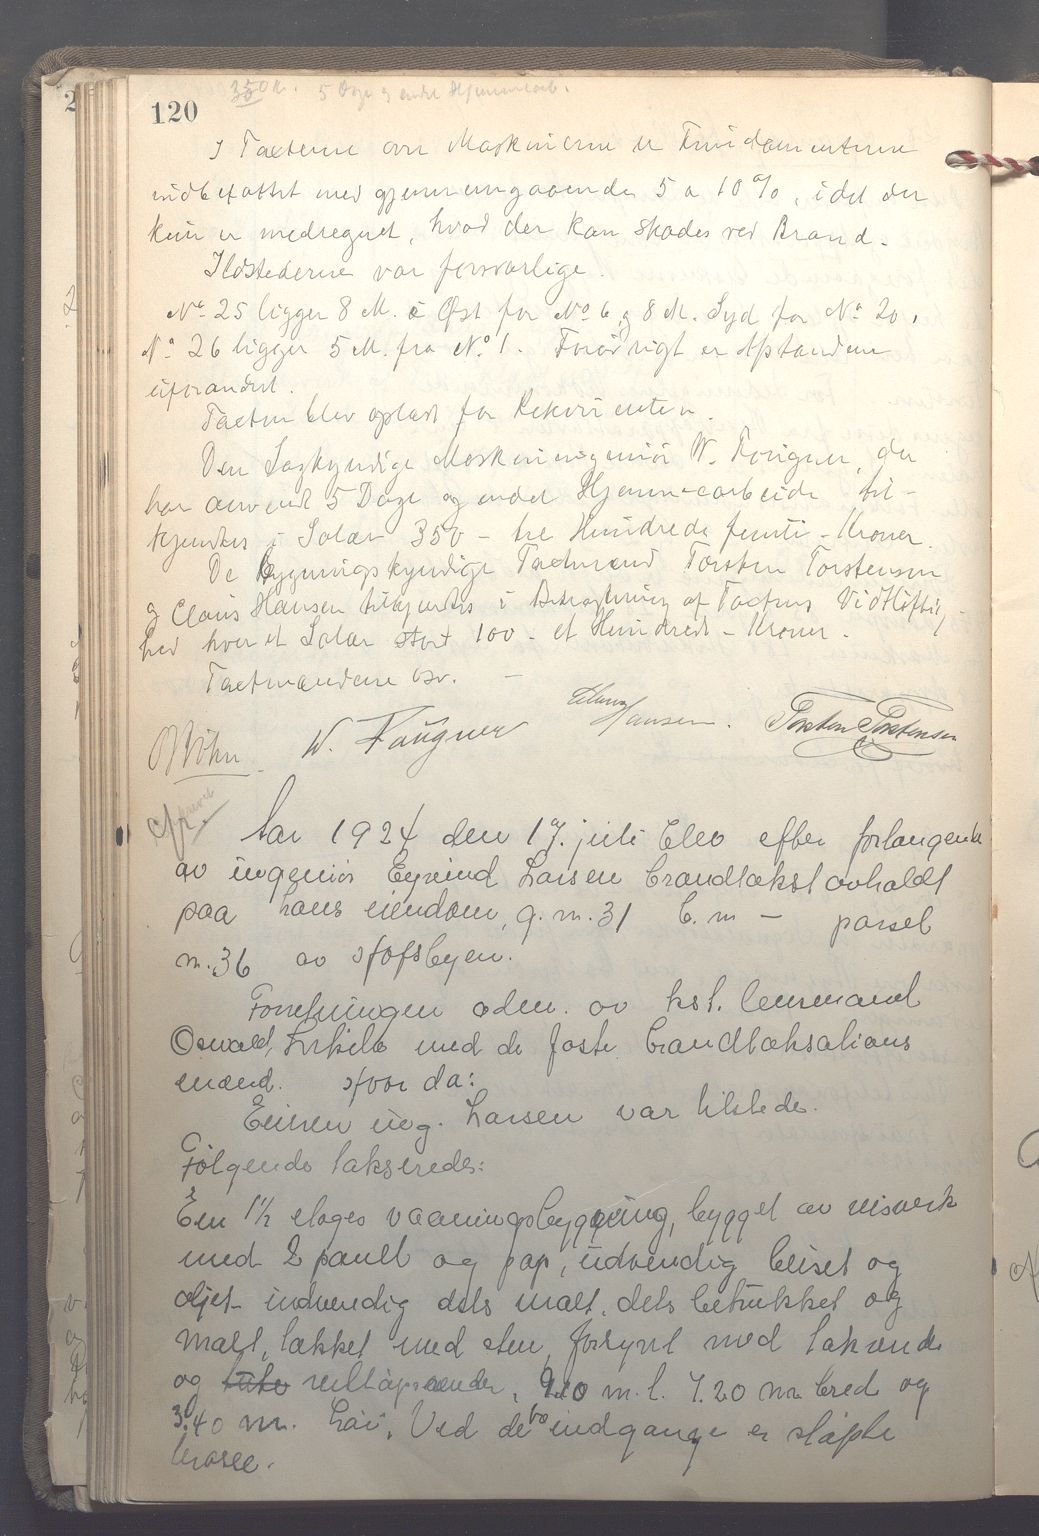 120
350 Kr. 5 Dage og endel Hjemmearb.
I Taxterne over Maskinerne er Fundamenterne
indbefattet med gjennemgaaende 5 a 10 %, idet der
kun er medregnet, hvad der kan skades ved Brand.
Ildstederne var forsvarlige.
No 25 ligger 8 M. i Øst for No 6 og 8 M. Syd for No 20,
No 26 ligger 5 M. fra No 1. Forøvrigt er Afstandene
uforandret.
Taxten blev oplæst for Rekvirenten.
Den Sagkyndige Maskiningeniør W. Faugner, der
har anvendt 5 Dage og endel Hjemmearbeide til-
kjendes i Salær 350 - tre Hundrede femti - Kroner.
De bygningskyndige Taxtmænd Torsten Torstensen
og Claus Hansen tilkjendes i Betragtning af Taxtens Vidtløftig-
hed hver et Salær stort 100 - et Hundrede - Kroner.
Taxtmændene osv. -
W. Faugner Claus Hansen. Torsten Torstensen
Aar 1924 den 17. juli blev efter forlangende
av ingeniør Eyvind Larsen brandtakst avholdt
paa hans eiendom, g. nr. 31 b. nr - parsel
nr. 36 av
Forretningen adm. av kst. lensmand
Oswald med de faste brandtaksations
mænd.
Eieren ing. Larsen var tilstede.
Følgende takseredes:
En 1 1/2 etages vaaningsbygning, bygget av reisverk
med 2 panel og pap, utvendig beiset og
oljet indvendig dels malt, dels betrukket og
malt, tækket med sten, forsynt med takrende
og nedløpsrender, 9.10 m. l. 7.20 m bred og
3.40 m. høi. Ved de to indgange er støpte